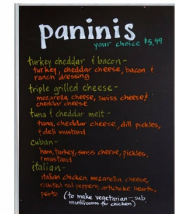 paninis
your choice $5.99
turkey cheddar & bacon -
turkey, cheddar cheese, bacon &
ranch dressing
triple grilled cheese -
mozzarella cheese, swiss cheese,
cheddar cheese
tuna & cheddar melt -
tuna, cheddar cheese, dill pickles,
& deli mustard
cuban -
ham, turkey, swiss cheese, pickles,
& mustard
italian -
italian chicken, mozzarella cheese,
roasted red peppers, artichoke hearts,
pesto (to make vegetarian - sub
mushrooms for chicken)